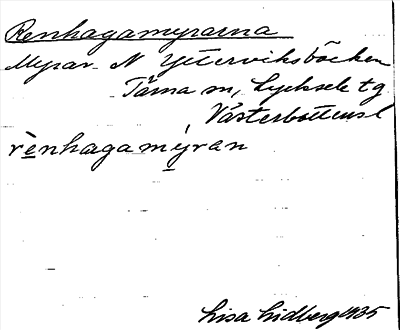 Renhagamyrarna
Myrar N Ytterviksbäcken
Tärna sn, Lycksele tg
Västerbottens l
rènhagamýran
Lisa Lidberg 1935